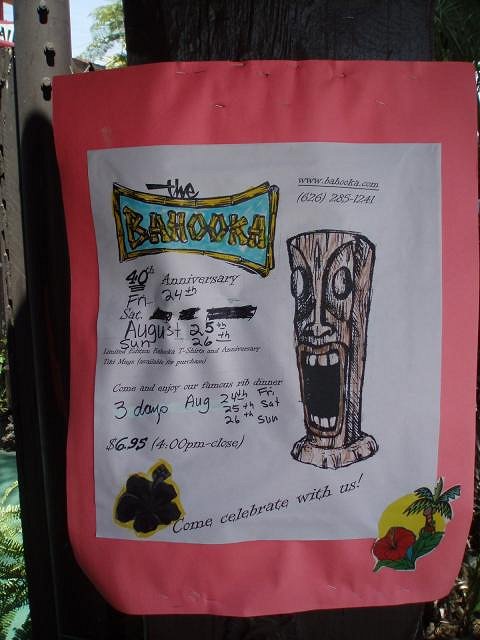 the
BAHOOKA
www.bahooka.com
(626) 285-1241
40th Anniversary
Fri 24th
Sat.
August 25th
Sun 26th
Limited Edition Bahooka T-Shirts and Anniversary
Tiki Mugs (available for purchase)
Come and enjoy our famous rib dinner
3 days Aug 24th Fri
25th Sat
26th Sun
$6.95 (4:00pm-close)
Come celebrate with us!